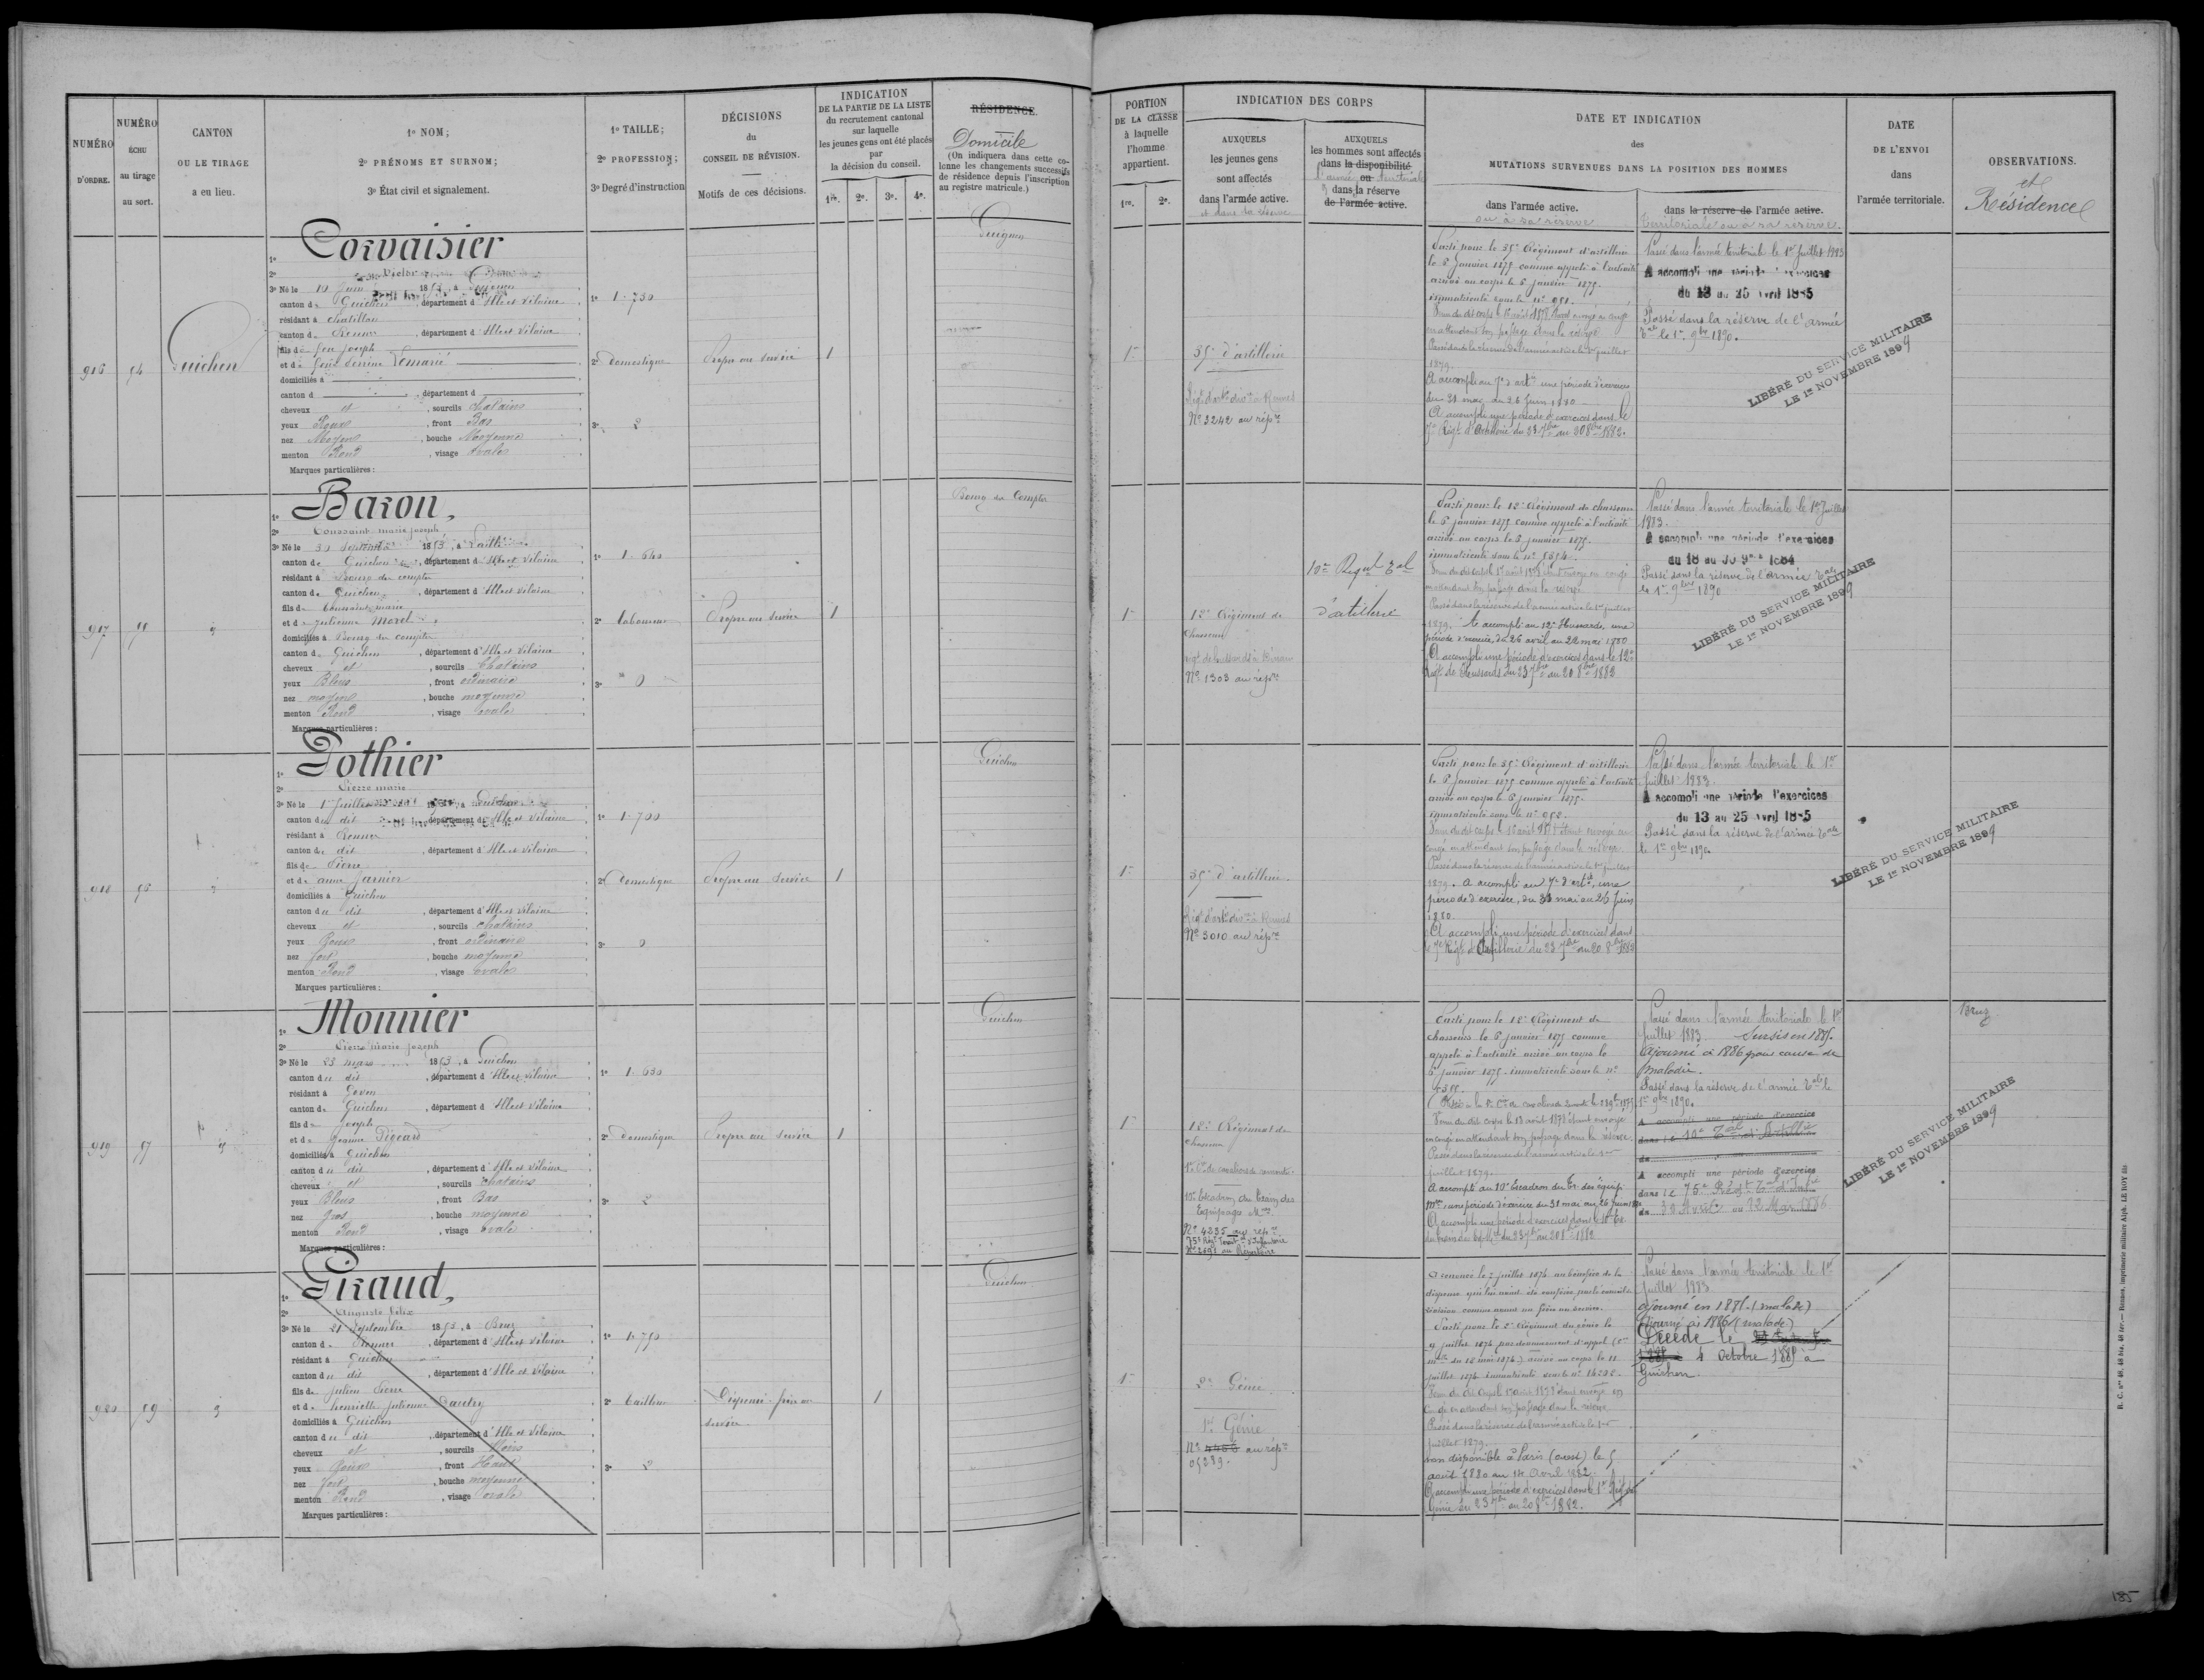 NUMÉRO
D'ORDRE.
NUMÉRO
ÉCHU
au tirage
au sort.
CANTON
OU LE TIRAGE
a eu lieu.
1º NOM;
2º PRÉNOMS ET SURNOM;
3º État civil et signalement.
1º TAILLE;
2º PROFESSION;
3º Degré d'instruction
DÉCISIONS
du
CONSEIL DE RÉVISION.
Motifs de ces décisions.
INDICATION
DE LA PARTIE DE LA LISTE
du recrutement cantonal
sur laquelle
les jeunes gens ont été placés
par
la décision du conseil.
1re. 2e. 3e. 4e.
RÉSIDENCE.
Domicile
(On indiquera dans cette co-
lonne les changements successifs
de résidence depuis l'inscription
au registre matricule.)
PORTION
DE LA CLASSE
à laquelle
l'homme
appartient.
1re. 2e.
INDICATION DES CORPS
AUXQUELS
les jeunes gens
sont affectés
dans l'armée active.
et dans la réserve
AUXQUELS
les hommes sont affectés
dans la disponibilité
l'armée ou territoriale
dans la réserve
de l'armée active.
DATE ET INDICATION
des
MUTATIONS SURVENUES DANS LA POSITION DES HOMMES
dans l'armée active.
ou à sa réserve
dans la réserve de l'armée active.
Territoriale ou à sa réserve.
DATE
DE L'ENVOI
dans
l'armée territoriale.
OBSERVATIONS.
et
Résidence
916
54
Guichen
1º Corvaisier
2º Victor
3º Né le 10 Juin 1853, à Guignen
canton de Guichen, département d'Ille et Vilaine
résidant à Chatillon
canton de Rennes, département d'Ille et Vilaine
fils de feu Joseph
et de feue Perrine Lemarié
domiciliés à
canton d , département d
cheveux et , sourcils Chatains
yeux Roux, front Bas
nez Moyen, bouche Moyenne
menton Rond, visage Ovale
Marques particulières:
1º 1.730
2º Domestique
3º 2
Propre au service
1
Guignen
1re
35e d'artillerie
Régt d'artie divre à Rennes
Nº 3242 au répre
Parti pour le 35e Régiment d'artillerie
le 5 Janvier 1875 comme appelé à l'activité
arrivé au corps le 5 Janvier 1875.
immatriculé sous le nº 951.
en attendant son passage dans la réserve
Passé dans la réserve de l'armée active le 1er juillet
1879.
A accompli au 7e d'artie une période d'exercices
du 31 mai au 26 Juin 1880
A accompli une période d'exercices dans le
7e Régt d'Artillerie du 23 7bre au 20 8bre 1882.
Passé dans l'armée territoriale le 1er Juillet 1883
A accompli une période d'exercices
du 13 au 25 Avril 1885
Passé dans la réserve de l'armée
Tale le 1er 9bre 1890.
LIBÉRÉ DU SERVICE MILITAIRE
LE 1er NOVEMBRE 1899
917
1º Baron,
2º Toussaint marie joseph
3º Né le 30 Septembre 1853, à Laillé
canton de Guichen, département d'Ille et Vilaine
résidant à Bourg des comptes
canton de Guichen, département d'Ille et Vilaine
fils de Toussaint marie
et de Julienne Morel
domiciliés à Bourg des comptes
canton de Guichen, département d'Ille et Vilaine
cheveux et , sourcils Chatains
yeux Bleus, front ordinaire
nez moyen, bouche moyenne
menton Rond, visage ovale
Marques particulières:
1º 1.640
2º Laboureur
3º 0
Propre au service
1
Bourg des Comptes
1re
12e Régiment de
Chasseurs
Nº 1303 au répre
10e Régt Tal
d'artillerie
Parti pour le 12e Régiment de chasseurs
le 5 janvier 1875 comme appelé à l'activité
arrivé au corps le 5 janvier 1875.
en attendant son passage dans la réserve
Passé dans la réserve de l'armée active le 1er juillet
1879. A accompli au 12e Hussards, une
période d'exercice, du 26 avril au 22 mai 1880
A accompli une période d'exercices dans le 12e
Régt de Hussards du 23 7bre au 20 8bre 1882
Passé dans l'armée territoriale le 1er Juillet
1883.
A accompli une période d'exercices
du 18 au 30 9bre 1884
Passé dans la réserve de l'armée Tale
le 1er 9bre 1890
LIBÉRÉ DU SERVICE MILITAIRE
LE 1er NOVEMBRE 1899
918
1º Pothier
2º Pierre marie
3º Né le 1er Juillet 1853, à Guichen
canton du dit, département d'Ille et Vilaine
résidant à Rennes
canton du dit, département d'Ille et Vilaine
fils de Pierre
et de anne Jarnier
domiciliés à Guichen
canton du dit, département d'Ille et Vilaine
cheveux et , sourcils chatains
yeux Roux, front ordinaire
nez fort, bouche moyenne
menton Rond, visage Ovale
Marques particulières:
1º 1.700
2º Domestique
3º 0
Propre au service
1
Guichen
1re
35e d'artillerie.
Régt d'artie divre à Rennes
Nº 3010 au répre
Parti pour le 35e Régiment d'artillerie
le 5 Janvier 1875 comme appelé à l'activité
arrivé au corps le 5 janvier 1875.
immatriculé sous le nº 952.
congé en attendant son passage dans la réserve
Passé dans la réserve de l'armée active le 1er Juillet
1879. A accompli au 7e d'artie, une
période d'exercice, du 31 mai au 26 Juin
1880.
A accompli une période d'exercices dans
le 7e Régt d'Artillerie du 23 7bre au 20 8bre 1882
Passé dans l'armée territoriale le 1er
Juillet 1883.
A accompli une période d'exercices
du 13 au 25 Avril 1885
Passé dans la réserve de l'armée Tale
le 1er 9bre 1890
LIBÉRÉ DU SERVICE MILITAIRE
LE 1er NOVEMBRE 1899
919
57
1º Monnier
2º Pierre marie Joseph
3º Né le 23 mars 1853, à Guichen
canton du dit, département d'Ille et Vilaine
résidant à Goven
canton de Guichen, département d'Ille et Vilaine
fils de Joseph
et de Jeanne Pigeard
domiciliés à Guichen
canton du dit, département d'Ille et Vilaine
cheveux et , sourcils chatains
yeux Bleus, front Bas
nez Gros, bouche moyenne
menton Rond, visage ovale
Marques particulières:
1º 1.630
2º Domestique
3º 2
Propre au service
1
Guichen
1re
12e Régiment de
Chasseurs
1re Cie de cavaliers de remonte
10e Escadron du train des
Equipages Mres
Nº 4235 au répre
75e Régt Territl d'Infanterie
Nº 2691 au Répertoire
Parti pour le 12e Régiment de
chasseurs le 5 janvier 1875 comme
appelé à l'activité arrivé au corps le
5 janvier 1875. immatriculé sous le nº
en congé en attendant son passage dans la réserve.
Passé dans la réserve de l'armée active le 1er
juillet 1879.
A accompli au 10e Escadron du Tr. des équip.
Mres une période d'exercice du 31 mai au 26 Juin 1880
Passé dans l'armée territoriale le 1er
Juillet 1883. Sursis en 1885.
Ajourné à 1886 pour cause de
maladie.
Passé dans la réserve de l'armée Tale le
1er 9bre 1890.
A accompli une période d'exercices
dans le 10e Tal d'Artillie
du
A accompli une période d'exercices
dans le 75e Régt Tal d'Infie
du Avril au Mai 1886
LIBÉRÉ DU SERVICE MILITAIRE
LE 1er NOVEMBRE 1899
Bruz
920
59
1º Giraud,
2º Auguste Félix
3º Né le 21 Septembre 1853, à Bruz
canton de Rennes, département d'Ille et Vilaine
résidant à Guichen
canton du dit, département d'Ille et Vilaine
fils de Julien Pierre
et de henriette Julienne Dautry
domiciliés à Guichen
canton du dit, département d'Ille et Vilaine
cheveux et , sourcils Noirs
yeux Roux, front Haut
nez fort, bouche moyenne
menton Rond, visage ovale
Marques particulières:
1º 1.750
2º Tailleur
3º 2
Dispensé frère au
service
1
Guichen
1re
2e Génie
1er Génie
Nº 4456 au répre
05289.
A renoncé le 7 juillet 1874 au bénéfice de la
dispense qui lui avait été conférée par le conseil de
révision comme ayant un frère au service.
Parti pour le 2e Régiment du génie le
9 juillet 1874 par devancement d'appel
arrivé au corps le 11
juillet 1874
congé en attendant son passage dans la réserve
Passé dans la réserve de l'armée active le 1er
Juillet 1879.
non disponible à Paris (ouest) le 5
août 1880 au 14 Avril 1882.
A accompli une période d'exercices dans le 1er Régt du
Génie du 23 7bre au 20 8bre 1882.
Passé dans l'armée territoriale le 1er
Juillet 1883
ajourné en 1885. (malade)
Ajourné à 1886 (malade)
Décédé le
4 Octobre 1885 à
Guichen.
R. C. nos 48, 48 bis, 48 ter.— Rennes, imprimerie militaire Alph. LE ROY fils
185